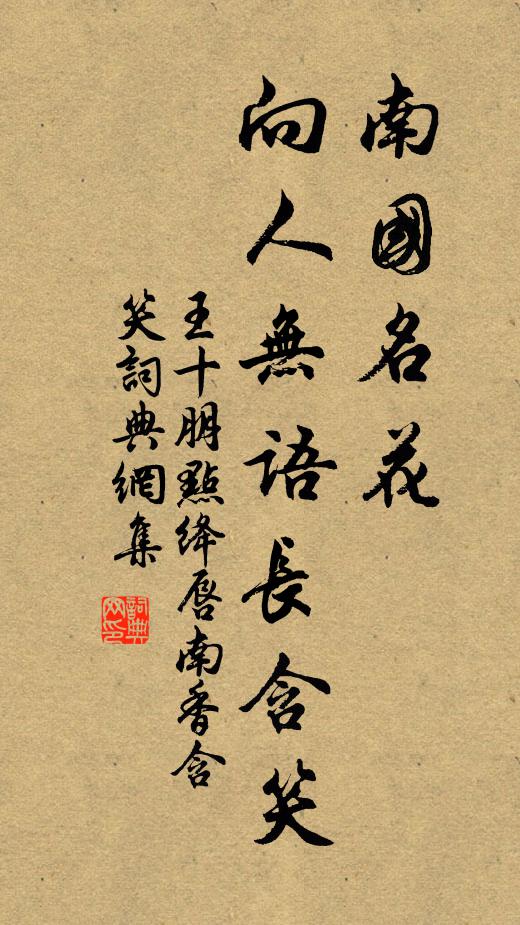 南國名花
向人無語長含笑
王十朋點绛唇南香含
笑詞典網集
詞典
网印